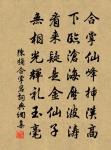 合掌仙峰插漢高
下臨滄海靡波濤
看來疑是金仙子
無相光輝禮玉毫
陳偁合掌岩詞典網集